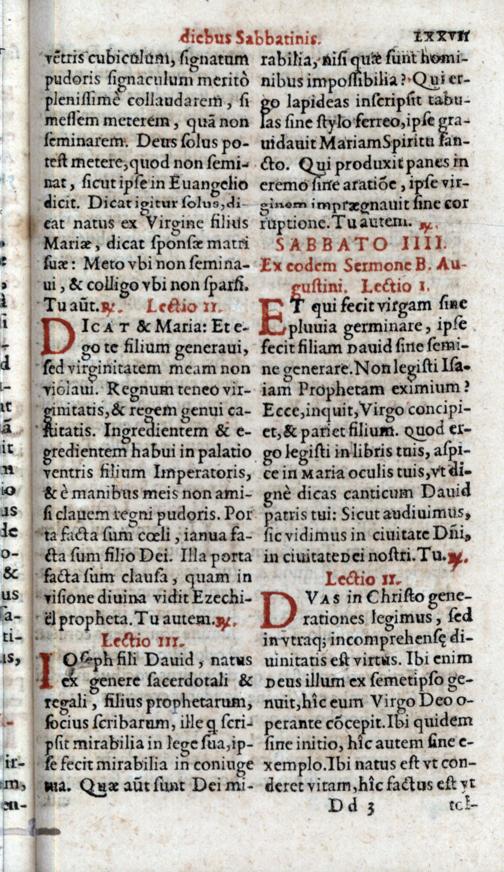 diebus Sabbatinis. LXXVII
vētris cubiculum, signatum
pudoris signaculum meritò
plenissimè collaudarem, si
messem meterem, quā non
seminarem. Deus solus po-
test metere, quod non semi-
nat, sicut ipse in Euangelio
dicit. Dicat igitur solus, di-
cat natus ex Virgine filius
Mariæ, dicat sponsæ matri
suæ: Meto vbi non semina-
ui, & colligo vbi non sparsi.
Tu aūt. ℟. Lectio II.
DICAT & Maria: Et e-
go te filium generaui,
sed virginitatem meam non
violaui. Regnum teneo vir-
ginitatis, & regem genui ca-
stitatis. Ingredientem & e-
gredientem habui in palatio
ventris filium Imperatoris,
& è manibus meis non ami-
si clauem regni pudoris. Por
ta facta sum cœli, ianua fa-
cta sum filio Dei. Illa porta
facta sum clausa, quam in
visione diuina vidit Ezechi-
ël propheta. Tu autem. ℟.
Lectio III.
IOseph fili Dauid, natus
ex genere sacerdotali &
regali, filius prophetarum,
socius scribarum, ille q scri-
psit mirabilia in lege sua, ip-
se fecit mirabilia in coniuge
tua. Quæ aūt sunt Dei mi-
rabilia, nisi quæ sunt homi-
nibus impossibilia? Qui er-
go lapideas inscripsit tabu-
las sine stylo ferreo, ipse gra-
uidauit Mariam Spiritu san-
cto. Qui produxit panes in
eremo sine aratiōe, ipse vir-
ginem imprægnauit sine cor
ruptione. Tu autem. ℟.
SABBATO IIII.
Ex eodem Sermone B. Au-
gustini. Lectio I.
ET qui fecit virgam sine
pluuia germinare, ipse
fecit filiam Dauid sine semi-
ne generare. Non legisti Isa-
iam Prophetam eximium?
Ecce, inquit, Virgo concipi-
et, & pariet filium. Quod er-
go legisti in libris tuis, aspi-
ce in Maria oculis tuis, vt di-
gnè dicas canticum Dauid
patris tui: Sicut audiuimus,
sic vidimus in ciuitate Dn̄i,
in ciuitate Dei nostri. Tu. ℟.
Lectio II.
DVAS in Christo gene-
rationes legimus, sed
in vtraq; incomprehensę di-
uinitatis est virtus. Ibi enim
Deus illum ex semetipso ge-
nuit, hîc eum Virgo Deo o-
perante cōcepit. Ibi quidem
sine initio, hîc autem sine e-
xemplo. Ibi natus est vt con-
deret vitam, hîc factus est vt
Dd 3 tol-